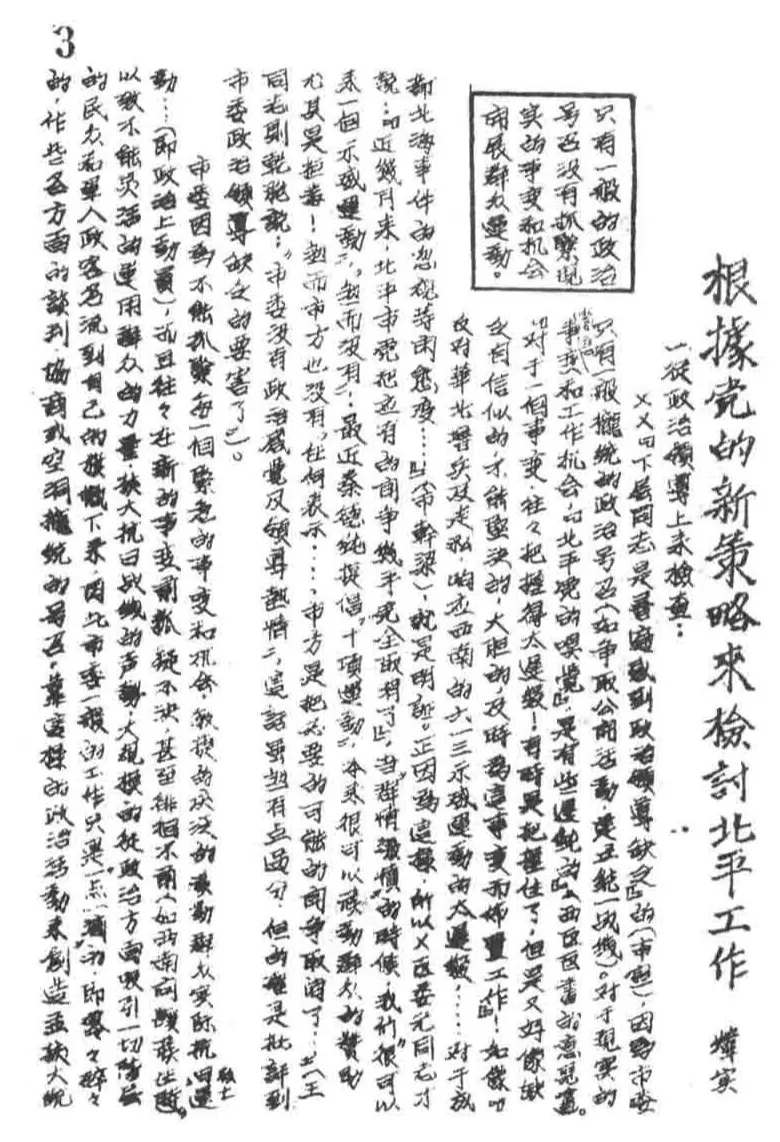 3
根據党的新策略來檢討北平工作 煒实
一從政治領導上来檢查：
只有一般的政治
号召没有抓緊現
实的事变和机会
開展群众運動。
××由下层同志是普遍感到政治領導缺乏』的（市 ）因為市委
只有一般攏統的政治号召（如争取公開活動建立統一战线）。对于現实的
事变和工作机会，『北平党的嗅觉』是有些遲鈍的』（西区区書的意見
『对于一個事变往々把握得太遲緩！有時是把握住了，但是又好像缺
乏自信似的，不能堅决的，大胆的，及時為這事变而佈置工作』！如像
反対華北增兵及走私，响应西南的六一三示威運動的太遲緩，……对于成
都北海事件的忽視等 態度……』（市幹 ），就是明証。正因為這樣，所以×区委 同志才
說……『近幾月来，北平市党把应有的鬥争幾乎完全取消了』，当『群情激憤』的時候，我們『很可以
来一個示威運動』。然而没有；最近 提倡『十項運動』，本来很可以發動群众的贊助
尤其是 ！然而市方也没有任何表示……，市方是把必要的可能的鬥争取消了……』（王
同志則乾脆說：『市委没有政治感觉及領導熱情』，這話虽然有点過分，但的確是批評到
市委政治領導缺乏的要害了』）。
市委因為不能抓緊每一個緊急的事变和机会，敏捷的灵活的發動群众实际抗日運
動……（即政治上動員），而且往々在新的事变前狐疑不决，甚至徘徊不前（如西南问題發生時），
以致不能灵活的運用群众的力量，扩大抗日战线的声勢，大規模的從政治方面吸引一切階层
的民众和軍人政客名流到自己的旗幟下来。因此市委一般的工作只是『一点一滴』的，即零々碎々
的，作些各方面的談判，協商或空洞攏統的号召，靠這樣的政治活動来創造并扩大統